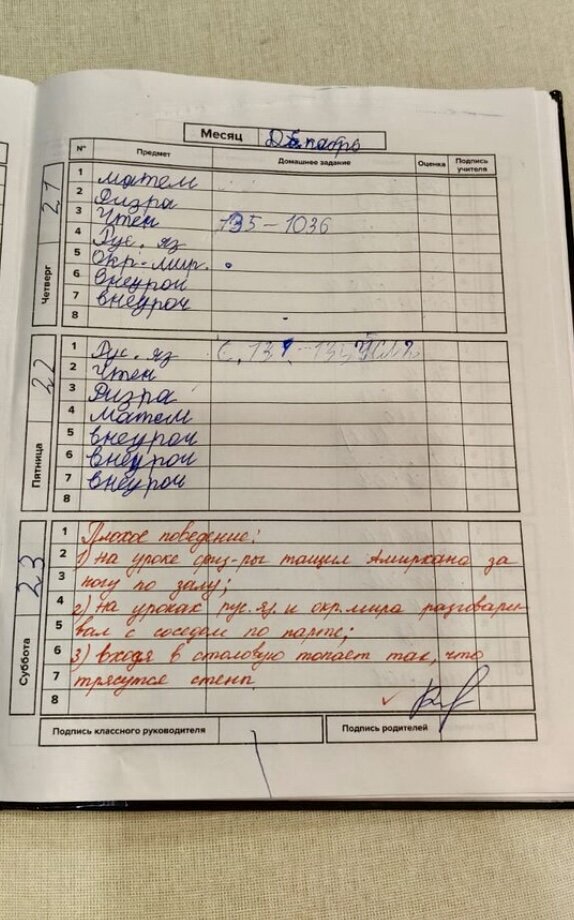 Месяц Декабрь
№ Предмет Домашнее задание Оценка Подпись учителя
Четверг 21
1 матем
2 Физра
3 Чтен 135-1036
4 Рус. яз
5 Окр. мир.
6 внеуроч
7 внеуроч
8
Пятница 22
1 Рус. яз с. 131
2 Чтен
3 Физра
4 матем
5 внеуроч
6 внеуроч
7 внеуроч
8
Суббота 23
1 Плохое поведение:
2 1) на уроке физ-ры тащил Амирхана за
3 ногу по залу;
4 2) на уроках рус.яз. и окр.мира разговари
5 вал с соседом по парте;
6 3) входя в столовую топает так, что
7 трясутся стены.
8
Подпись классного руководителя Подпись родителей